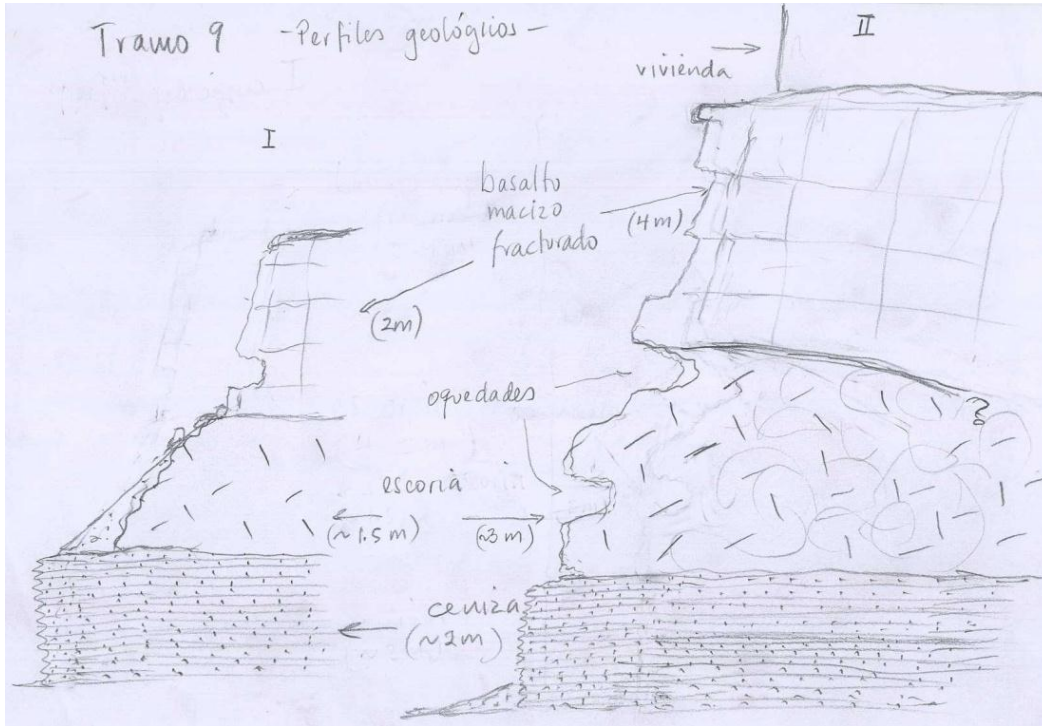 Tramo 9 - Perfiles geológicos -
I
II
vivienda
basalto
macizo
fracturado
(4m)
(2m)
oquedades
?
escoria
(~1.5 m)
(~3 m)
ceniza
(~2m)